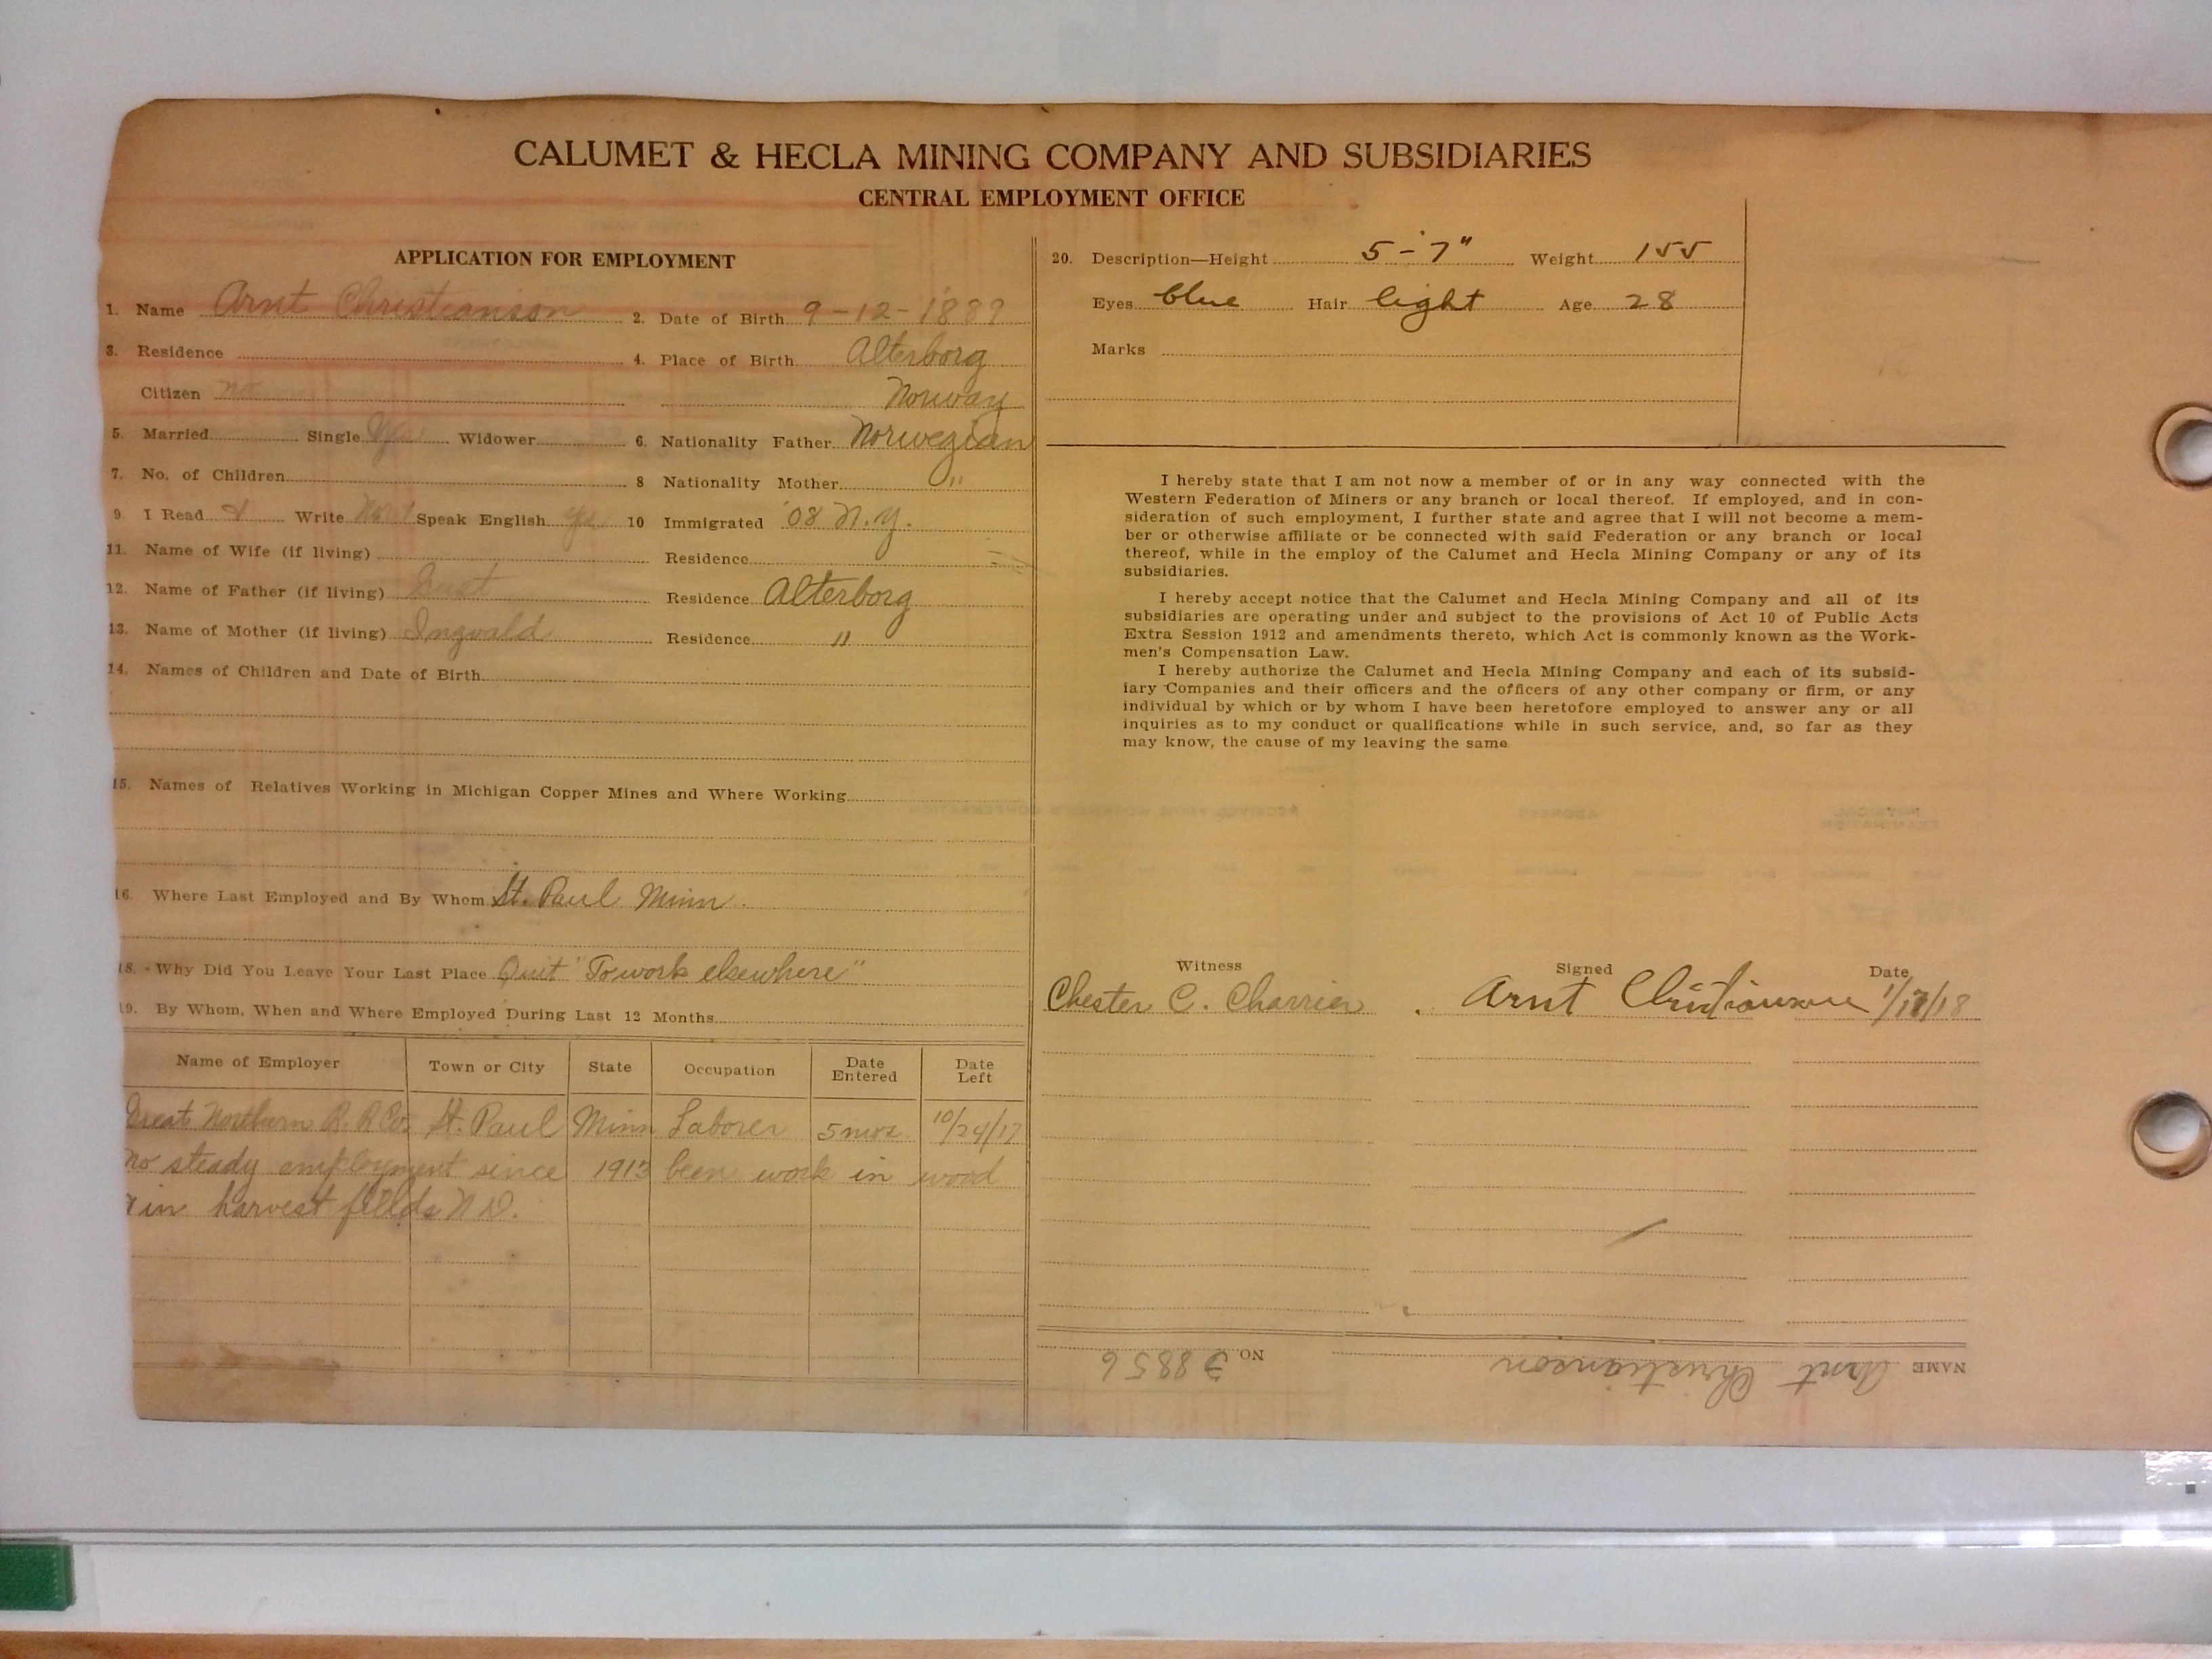 CALUMET & HECLA MINING COMPANY AND SUBSIDIARIES
CENTRAL EMPLOYMENT OFFICE
APPLICATION FOR EMPLOYMENT
1. Name Arnt Christianson 2. Date of Birth 9-12-1889
3. Residence 4. Place of Birth Alterborg
Citizen no Norway
5. Married Single Yes Widower 6. Nationality Father Norwegian
7. No. of Children 8 Nationality Mother "
9 I Read & Write Speak English Yes 10 Immigrated '08 N.Y.
11. Name of Wife (if living) Residence
12. Name of Father (if living) Gust Residence Alterborg
13. Name of Mother (if living) Ingvald Residence "
14. Names of Children and Date of Birth
15. Names of Relatives Working in Michigan Copper Mines and Where Working
16. Where Last Employed and By Whom St. Paul Minn.
18. Why Did You Leave Your Last Place Quit "To work elsewhere"
19. By Whom, When and Where Employed During Last 12 Months
Name of Employer Town or City State Occupation Date Entered Date Left
Great Northern R. R Co. St. Paul Minn Laborer 5 mos. 10/24/17
No steady employment since 1913 been work in wood
in harvest fields N D.
20. Description—Height 5-7" Weight 155
Eyes blue Hair light Age 28
Marks
I hereby state that I am not now a member of or in any way connected with the
Western Federation of Miners or any branch or local thereof. If employed, and in con-
sideration of such employment, I further state and agree that I will not become a mem-
ber or otherwise affiliate or be connected with said Federation or any branch or local
thereof, while in the employ of the Calumet and Hecla Mining Company or any of its
subsidiaries.
I hereby accept notice that the Calumet and Hecla Mining Company and all of its
subsidiaries are operating under and subject to the provisions of Act 10 of Public Acts
Extra Session 1912 and amendments thereto, which Act is commonly known as the Work-
men's Compensation Law.
I hereby authorize the Calumet and Hecla Mining Company and each of its subsid-
iary Companies and their officers and the officers of any other company or firm, or any
individual by which or by whom I have been heretofore employed to answer any or all
inquiries as to my conduct or qualifications while in such service, and, so far as they
may know, the cause of my leaving the same
Witness Signed Date
Chester C. Charrier Arnt Christianson 1/17/18
NAME Arnt Christianson NO. 38856